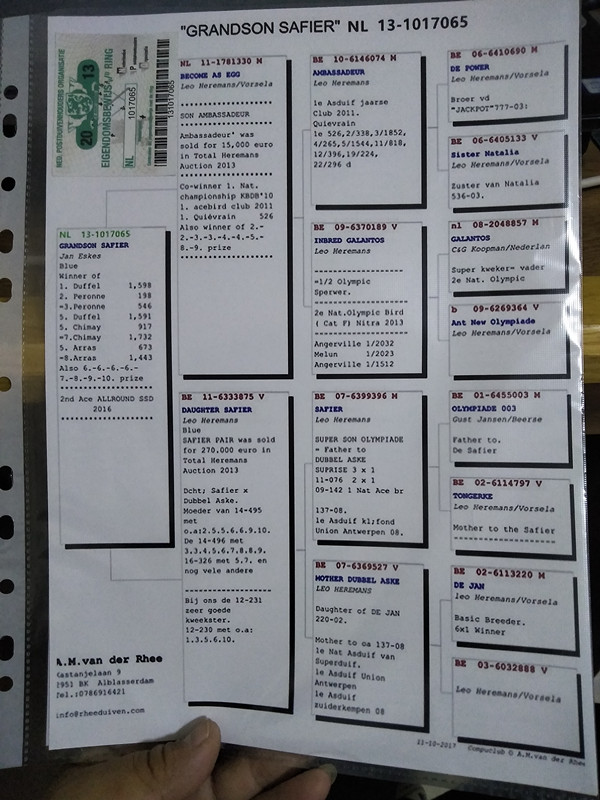 "GRANDSON SAFIER" NL 13-1017065
NED. POSTDUIVENHOUDERS ORGANISATIE
20 13
EIGENDOMSBEWIJS RING
NL
1017065
131017065
NL 13-1017065
GRANDSON SAFIER
Jan Eskes
Blue
Winner of
1. Duffel 1,598
2. Peronne 198
=3.Peronne 546
5. Duffel 1,591
5. Chimay 917
=7.Chimay 1,732
5. Arras 673
=8.Arras 1,443
Also 6.-6.-6.-6.-
7.-8.-9.-10. prize
2nd Ace ALLROUND SSD
2016
A.M.van der Rhee
Kastanjelaan 9
2951 BK Alblasserdam
Tel.:0786916421
info@rheeduiven.com
NL 11-1781330 M
BECOME AS EGG
Leo Heremans/Vorsela
SON AMBASSADEUR
Ambassadeur' was
sold for 15,000 euro
in Total Heremans
Auction 2013
Co-winner 1. Nat.
championship KBDB'10
1. acebird club 2011
1. Quiévrain 526
Also winner of 2.-
2.-3.-3.-4.-4.-5.-
8.-9. prize
BE 11-6333875 V
DAUGHTER SAFIER
Leo Heremans
Blue
SAFIER PAIR was sold
for 270,000 euro in
Total Heremans
Auction 2013
Dcht; Safier x
Dubbel Aske.
Moeder van 14-495
met
o.a:2.5.5.6.6.9.10.
De 14-496 met
3,3.4.5.6.7.8.8.9.
16-326 met 5,7. en
nog vele andere
Bij ons de 12-231
zeer goede
kweekster.
12-230 met o.a:
1.3.5.6.10.
BE 10-6146074 M
AMBASSADEUR
Leo Heremans/Vorsela
1e Asduif jaarse
Club 2011.
Quievrain
1e 526,2/338,3/1852,
4/265,5/1544,11/818,
12/396,19/224,
22/296 d
BE 09-6370189 V
INBRED GALANTOS
Leo Heremans
=1/2 Olympic
Sperwer.
2e Nat.Olympic Bird
( Cat F) Nitra 2013
Angerville 1/2032
Melun 1/2023
Angerville 1/1512
BE 07-6399396 M
SAFIER
Leo Heremans
SUPER SON OLYMPIADE
= Father to
DUBBEL ASKE
SUPRISE 3 x 1
11-076 2 x 1
09-142 1 Nat Ace br
137-08.
1e Asduif kl;fond
Union Antwerpen 08.
BE 07-6369527 V
MOTHER DUBBEL ASKE
LEO HEREMANS
Daughter of DE JAN
220-02.
Mother to oa 137-08
1e Nat Asduif van
Superduif.
1e Asduif Union
Antwerpen
1e Asduif
zuiderkempen 08
BE 06-6410690 M
DE POWER
Leo Heremans/Vorsela
Broer vd
"JACKPOT"777-03:
BE 06-6405133 V
Sister Natalia
Leo Heremans/Vorsela
Zuster van Natalia
536-03.
nl 08-2048857 M
GALANTOS
C&G Koopman/Nederlan
Super kweker= vader
2e Nat. Olympic
b 09-6269364 V
Ant New Olympiade
Leo Heremans/Vorsela
BE 01-6455003 M
OLYMPIADE 003
Gust Jansen/Beerse
Father to.
De Safier
BE 02-6114797 V
TONGERKE
Leo Heremans/Vorsela
Mother to the Safier
BE 02-6113220 M
DE JAN
leo Heremans/Vorsela
Basic Breeder.
6x1 Winner
BE 03-6032888 V
Leo Heremans/Vorsela
11-10-2017 Compuclub © A.M.van der Rhee